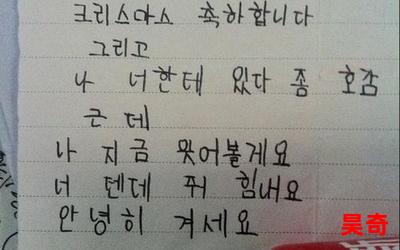 크리스마스 축하합니다
그리고
나 너한테 있다 좀 호감
근데
나 지금 왓어볼게요
너 텐데 쥐 힘내요
안녕히 겨세요
昊奇